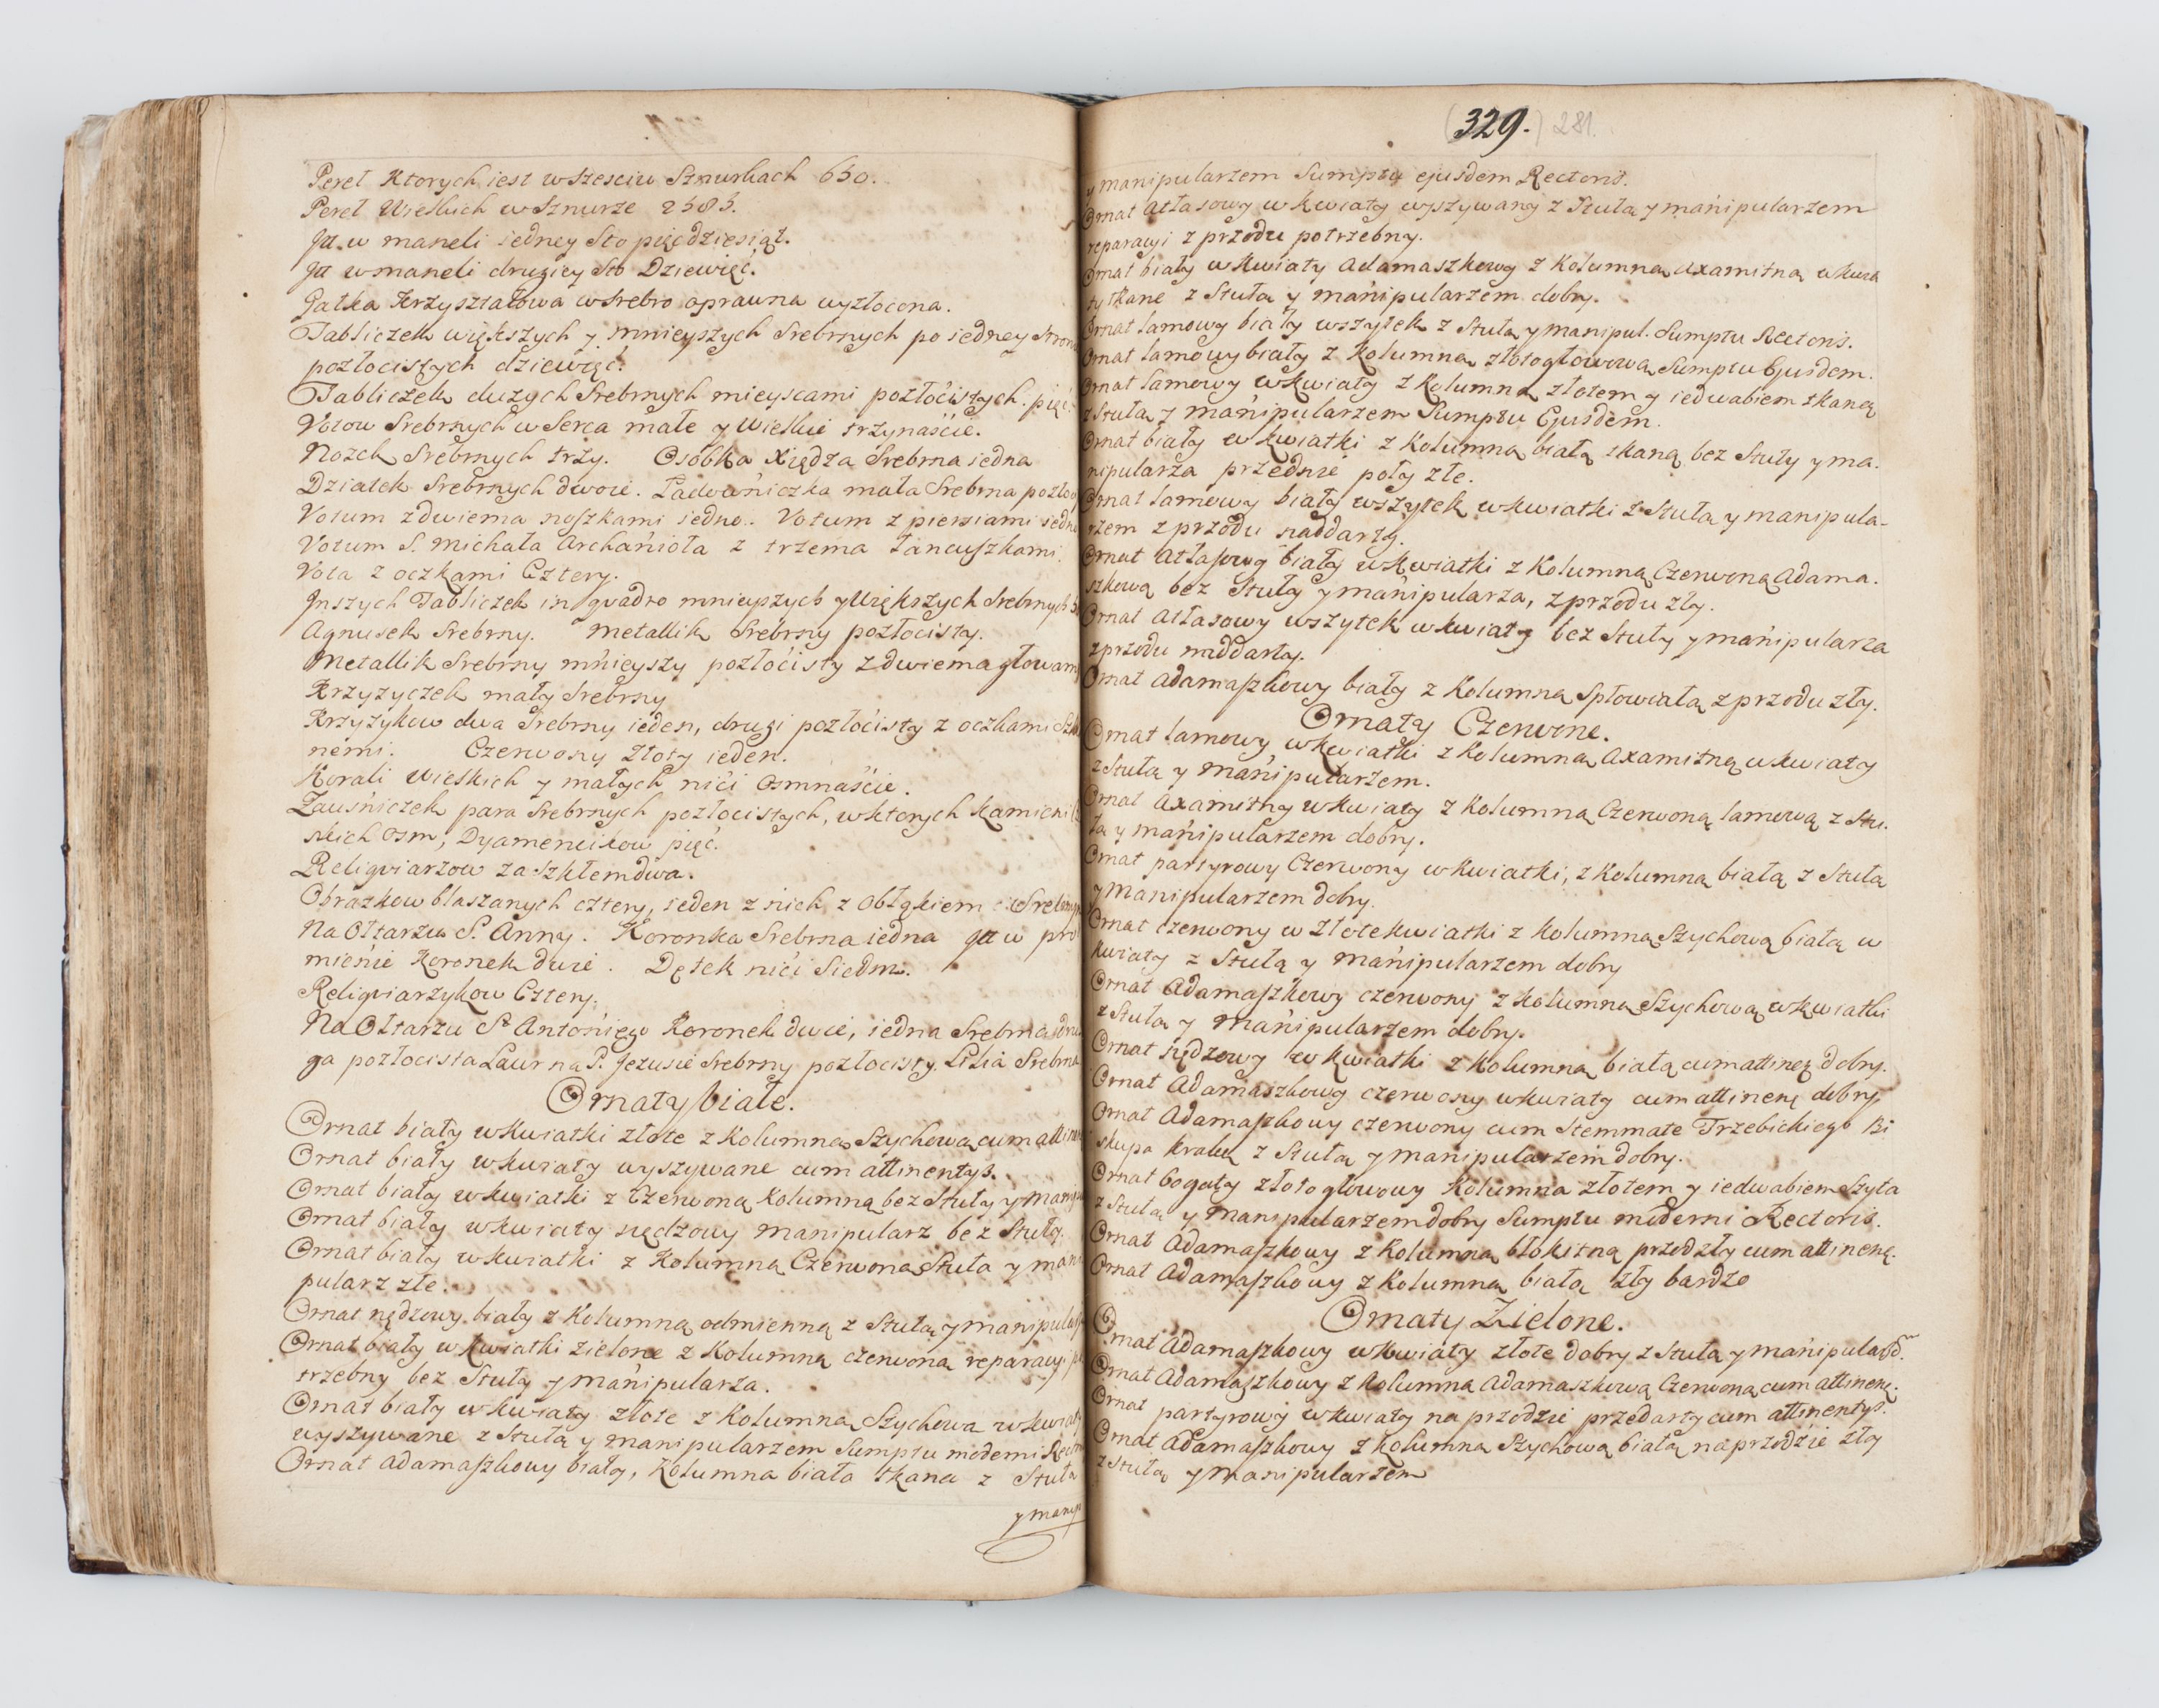 Pereł Ktorych iest w Szesciu Sznurkach 630.
Pereł Wielkich w Sznurze 2383.
It. w maneli iedney Sto pięćdziesiąt.
It w maneli drugiey Sto Dziewięć.
Gałka Krzyształowa w Srebro oprawna wyzłocona.
Tabliczek większych y mnieyszych Srebrnych po iedney stron
pozłocistych dziewięć.
Tabliczek duzych Srebrnych mieyscami pozłocistych. pięć.
Votow Srebrnych w Serca małe y Wielkie trzynaście.
Nożek Srebrnych trzy. Osobka Xiędza Srebrna iedna
Dziatek Srebrnych dwoie. Ładowniczka mała Srebrna pozło
Votum z dwiema noszkami iedno. Votum z piersiami iedn
Votum S. Michała Archanioła z trzema łancuszkami.
Vota z oczkami Cztery.
Inszych Tabliczek in quadro mnieyszych y Większych Srebrnych
Agnusek Srebrny. Metallik Srebrny pozłocisty.
Metallik Srebrny mnieyszy pozłocisty z dwiema głowami
Krzyzyczek mały Srebrny
Krzyzykow dwa Srebrny ieden, drugi pozłocisty z oczkami Szkl
nemi. Czerwony Złoty ieden.
Korali Wielkich y małych nici Osmnaście.
Zauśniczek para Srebrnych pozłocistych, w ktorych kamieni
skich Osm, Dyamencikow pięć.
Religviarzow za Szkłem dwa.
Obrazkow blaszanych cztery, ieden z nich z Obłąkiem Srebrnym
Na Ołtarzu S. Anny. Koronka Srebrna iedna It w pro
mienie Koronek dwie. Dętek nici Siedm.
Religviarzykow Cztery.
Na Ołtarzu S. Antoniego Koronek dwie, iedna Srebrna dru
ga pozłocista Laur na P. Jezusie Srebrny pozłocisty. Lilia Srebrna
Ornaty białe.
Ornat biały w Kwiatki złote z Kolumną Szychową cum attinen
Ornat biały w kwiaty wyszywane cum attinentys.
Ornat biały w kwiatki z Czerwoną Kolumną bez Stuły y manipu
Ornat biały w kwiaty nędzowy manipularz bez Stuły.
Ornat biały w kwiatki z Kolumną Czerwoną Stuła y mani
pularz złe.
Ornat nędzowy biały z Kolumną odmienną z Stułą y manipular
Ornat biały w kwiatki zielone z Kolumną czerwoną reparacyi po
trzebny bez Stuły y manipularza.
Ornat biały w kwiaty złote z Kolumną Szychową w kwiaty
wyszywane z Stułą y manipularzem Sumptu moderni Rectoris
Ornat Adamaszkowy biały, Kolumna biało tkana z Stułą
y manip
(329.) 281.
y manipularzem Sumptu ejusdem Rectoris.
Ornat Atłasowy w kwiaty wyszywany z Stułą y manipularzem
reparacyi z przodu potrzebny.
Ornat biały w kwiaty Adamaszkowy z Kolumną Axamitną w kwia
ty tkane z Stułą y manipularzem dobry.
Ornat lamowy biały wszytek z Stułą y manipul. Sumptu Rectoris.
Ornat lamowy biały z Kolumną złotogłowową Sumptu Ejusdem.
Ornat lamowy w kwiaty z Kolumną złotem y iedwabiem tkaną
z Stułą y manipularzem Sumptu Ejusdem.
Ornat biały w kwiatki z Kolumną białą tkaną bez Stuły y ma.
nipularza przednie poły złe.
Ornat lamowy biały wszytek w kwiatki z Stułą y manipula-
rzem z przodu naddarty.
Ornat Atłasowy biały w kwiatki z Kolumną Czerwoną Adama.
szkową bez Stuły y manipularza, z przodu zły.
Ornat Atłasowy wszytek w kwiaty bez Stuły y manipularza
z przodu naddarty.
Ornat Adamaszkowy biały z Kolumną Spłowiałą z przodu zły.
Ornaty Czerwone.
Ornat lamowy w kwiatki z Kolumną Axamitną w kwiaty
z Stułą y manipularzem.
Ornat Axamitny w kwiaty z Kolumną Czerwoną lamową z Stu.
łą y manipularzem dobry.
Ornat partyrowy Czerwony w kwiatki, z Kolumną białą z Stułą
y manipularzem dobry.
Ornat czerwony w Złote kwiatki z Kolumną Szychową białą w
kwiaty z Stułą y manipularzem dobry
Ornat Adamaszkowy czerwony z Kolumną Szychową w kwiatki
z Stułą y manipularzem dobry.
Ornat nędzowy w kwiatki z Kolumną białą cum attinen. dobry.
Ornat Adamaszkowy czerwony w kwiaty cum attinen. dobry.
Ornat Adamaszkowy czerwony cum Stemmate Trzebickiego Bi
skupa Krakw z Stułą y manipularzem dobry.
Ornat bogaty złotogłowowy Kolumna złotem y iedwabiem Szyta
z Stułą y manipularzem dobry Sumptu moderni Rectoris.
Ornat Adamaszkowy z Kolumną błokitną przod zły cum attinen.
Ornat Adamaszkowy z Kolumną białą zły bardzo
Ornaty Zielone.
Ornat Adamaszkowy w kwiaty złote dobry z Stułą y manipular.
Ornat Adamaszkowy z Kolumną Adamaszkową Czerwoną cum attinen.
Ornat partyrowy w kwiaty na przodzie przedarty cum attinentys.
Ornat Adamaszkowy z Kolumną Szychową białą na przodzie zły
z Stułą y manipularzem